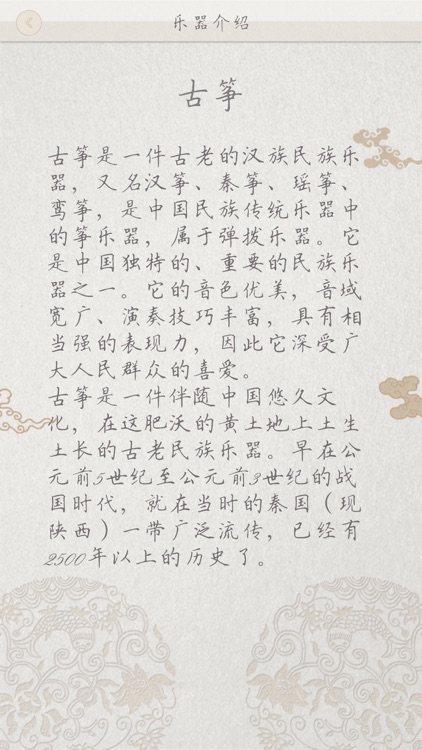 乐器介绍
古筝
古筝是一件古老的汉族民族乐
器，又名汉筝、秦筝、瑶筝、
鸾筝，是中国民族传统乐器中
的筝乐器，属于弹拨乐器。它
是中国独特的、重要的民族乐
器之一。它的音色优美，音域
宽广、演奏技巧丰富，具有相
当强的表现力，因此它深受广
大人民群众的喜爱。
古筝是一件伴随中国悠久文
化，在这肥沃的黄土地上土生
土长的古老民族乐器。早在公
元前5世纪至公元前3世纪的战
国时代，就在当时的秦国（现
陕西）一带广泛流传，已经有
2500年以上的历史了。